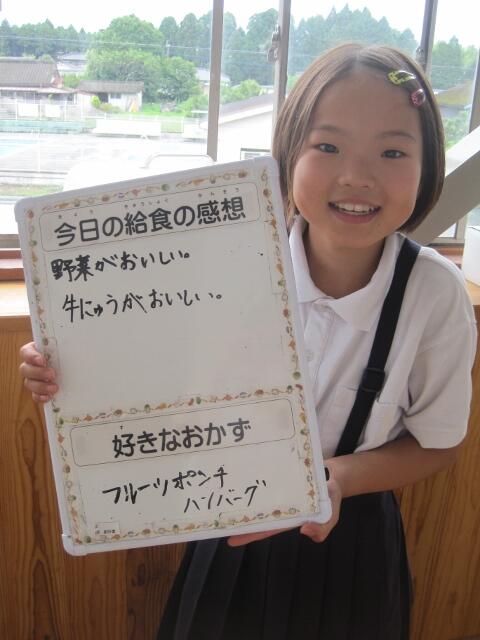 今日の給食の感想
野菜がおいしい。
牛にゅうがおいしい。
好きなおかず
フルーツポンチ
ハンバーグ